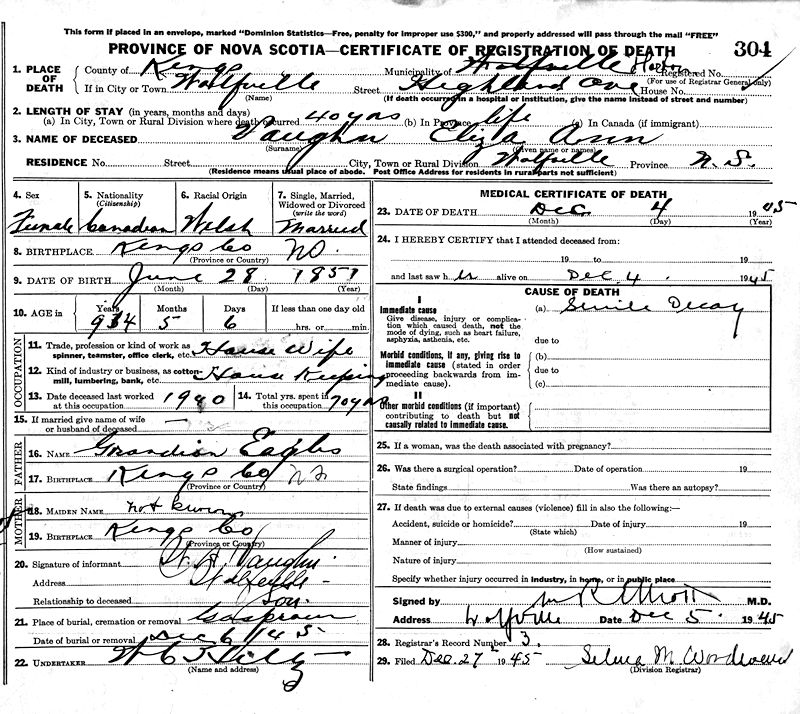 This form if placed in an envelope, marked "Dominion Statistics—Free, penalty for improper use $300," and properly addressed will pass through the mail "FREE"
PROVINCE OF NOVA SCOTIA—CERTIFICATE OF REGISTRATION OF DEATH 304
1. PLACE OF DEATH County of Kings Municipality of Wolfville Registered No.
(For use of Registrar General only)
If in City or Town Wolfville Street Highland Ave House No.
(Name) (If death occurred in a hospital or institution, give the name instead of street and number)
2. LENGTH OF STAY (in years, months and days)
(a) In City, Town or Rural Division where death occurred 40 yrs (b) In Province life (c) In Canada (if immigrant)
3. NAME OF DECEASED Vaughn Eliza Ann
(Surname) (Given name or names)
RESIDENCE No. Street City, Town or Rural Division Wolfville Province N. S.
(Residence means usual place of abode. Post Office Address for residents in rural parts not sufficient)
4. Sex Female
5. Nationality (Citizenship) Canadian
6. Racial Origin Welsh
7. Single, Married, Widowed or Divorced (write the word) Married
8. BIRTHPLACE Kings Co
(Province or Country)
9. DATE OF BIRTH June 28 1851
(Month) (Day) (Year)
10. AGE in Years Months Days If less than one day old
5 6 hrs. or min.
OCCUPATION
11. Trade, profession or kind of work as spinner, teamster, office clerk, etc. House Wife
12. Kind of industry or business, as cotton-mill, lumbering, bank, etc. House Keeping
13. Date deceased last worked at this occupation 1940 14. Total yrs. spent in this occupation 70 yrs
15. If married give name of wife or husband of deceased —
FATHER
16. NAME Grandion Eagles
17. BIRTHPLACE Kings Co N S
(Province or Country)
MOTHER
18. MAIDEN NAME not known
19. BIRTHPLACE Kings Co
(Province or Country)
20. Signature of informant Vaughn
Address Wolfville
Relationship to deceased son
21. Place of burial, cremation or removal Gaspreau
Date of burial or removal Dec 6 / 45
22. UNDERTAKER
(Name and address)
MEDICAL CERTIFICATE OF DEATH
23. DATE OF DEATH Dec. 4 1945
(Month) (Day) (Year)
24. I HEREBY CERTIFY that I attended deceased from:
19 to 19
and last saw her alive on Dec. 4. 1945
CAUSE OF DEATH
I
Immediate cause
Give disease, injury or complication which caused death, not the mode of dying, such as heart failure, asphyxia, asthenia, etc.
(a) Senile Decay
due to
Morbid conditions, if any, giving rise to immediate cause (stated in order proceeding backwards from immediate cause).
(b)
due to
(c)
II
Other morbid conditions (if important) contributing to death but not causally related to immediate cause.
25. If a woman, was the death associated with pregnancy?
26. Was there a surgical operation? Date of operation 19
State findings Was there an autopsy?
27. If death was due to external causes (violence) fill in also the following:—
Accident, suicide or homicide? Date of injury 19
(State which)
Manner of injury
(How sustained)
Nature of injury
Specify whether injury occurred in industry, in home, or in public place
Signed by M.D.
Address Wolfville Date Dec 5. 1945
28. Registrar's Record Number 3.
29. Filed Dec. 27 1945 Selma M. Woodword
(Division Registrar)